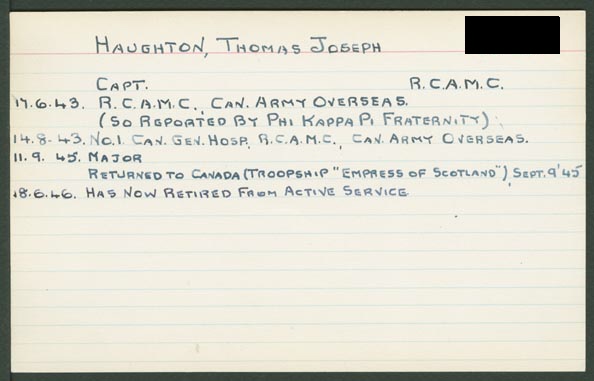 HAUGHTON, THOMAS JOSEPH
CAPT. R.C.A.M.C.
17.6.43. R.C.A.M.C., CAN. ARMY OVERSEAS.
(SO REPORTED BY PHI KAPPA PI FRATERNITY)
14.8.43. NO.1 CAN. GEN. HOSP., R.C.A.M.C., CAN. ARMY OVERSEAS.
11.9.45. MAJOR
RETURNED TO CANADA (TROOPSHIP "EMPRESS OF SCOTLAND"), SEPT. 9'45
18.6.46. HAS NOW RETIRED FROM ACTIVE SERVICE